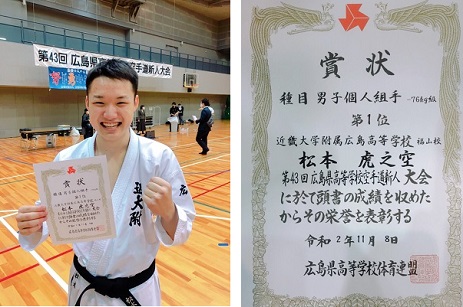 第43回 広島県高等学校空手道新人大会
賞状
近大附
広
賞状
種目 男子個人組手 -76kg級
第1位
近畿大学附属広島高等学校 福山校
松本 虎之空
第43回広島県高等学校空手道新人大会
に於て頭書の成績を収めた
からその栄誉を表彰する
令和2年11月8日
広島県高等学校体育連盟